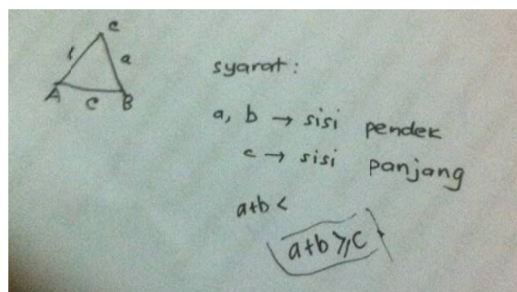 C
b a
A c B
syarat :
a, b → sisi pendek
c → sisi panjang
a+b <
a+b ≥ c